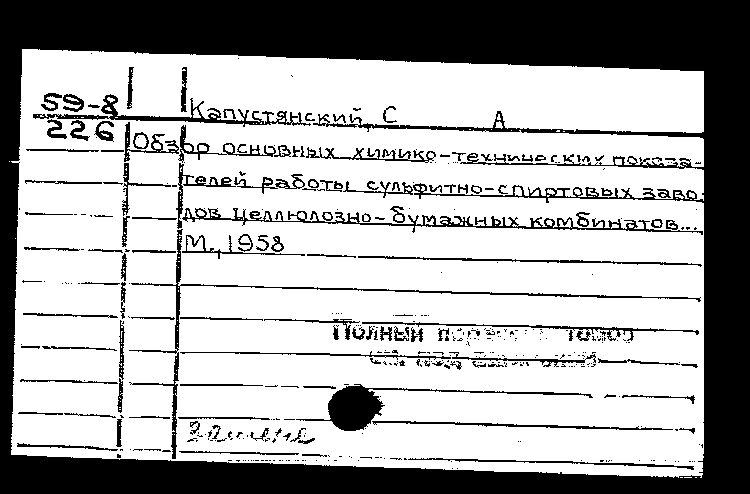 59-8
226
Капустянский, С А
Обзор основных химико-технических показа-
телей работы сульфитно-спиртовых заво-
дов целлюлозно-бумажных комбинатов...
М., 1958
Полный томов
см. под